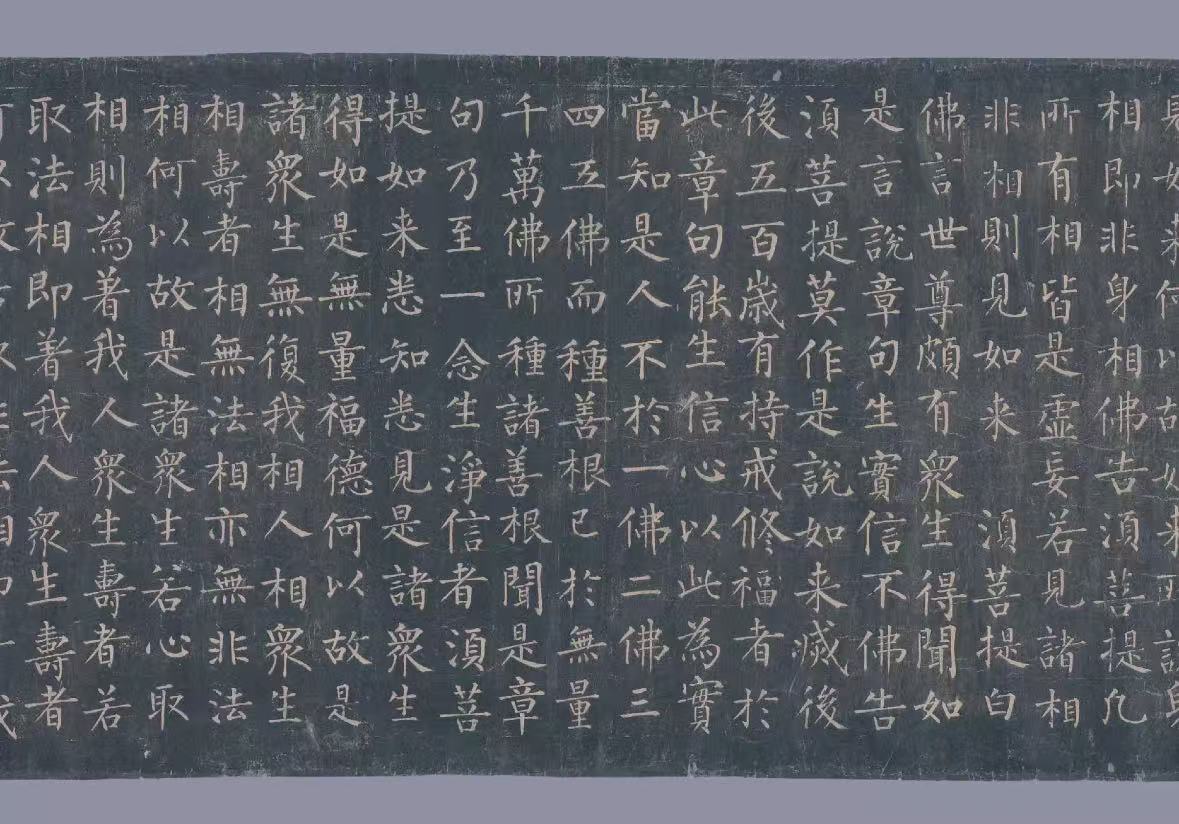 見如来何以故如来所說身
相即非身相佛告須菩提凡
所有相皆是虛妄若見諸相
非相則見如来　須菩提白
佛言世尊頗有衆生得聞如
是言說章句生實信不佛告
須菩提莫作是說如来滅後
後五百歲有持戒修福者於
此章句能生信心以此為實
當知是人不於一佛二佛三
四五佛而種善根已於無量
千萬佛所種諸善根聞是章
句乃至一念生淨信者須菩
提如来悉知悉見是諸衆生
得如是無量福德何以故是
諸衆生無復我相人相衆生
相壽者相無法相亦無非法
相何以故是諸衆生若心取
相則為着我人衆生壽者若
取法相即着我人衆生壽者